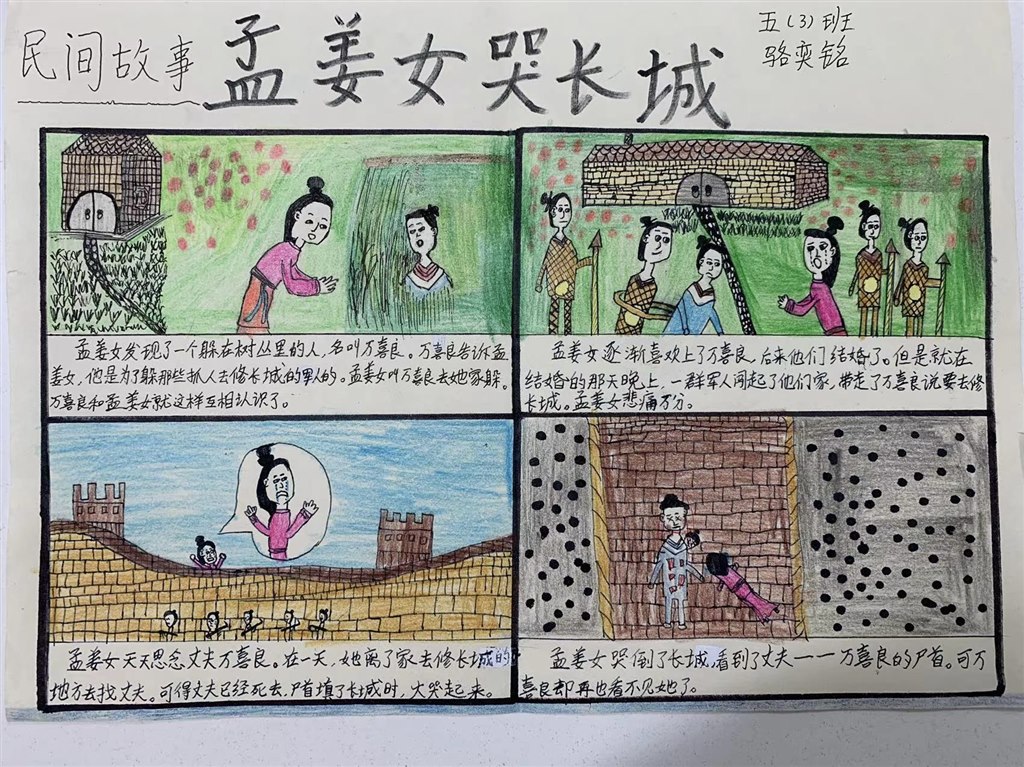 民间故事
孟姜女哭长城
五（3）班
骆奕铭
孟姜女发现了一个躲在树丛里的人，名叫万喜良。万喜良告诉孟
姜女，他是为了躲那些抓人去修长城的军人的。孟姜女叫万喜良去她家躲。
万喜良和孟姜女就这样互相认识了。
孟姜女逐渐喜欢上了万喜良，后来他们结婚了。但是就在
结婚的那天晚上，一群军人闯起了他们家，带走了万喜良说要去修
长城。孟姜女悲痛万分。
孟姜女天天思念丈夫万喜良。在一天，她离了家去修长城的
地方去找丈夫。可得丈夫已经死去，尸首填了长城时，大哭起来。
孟姜女哭倒了长城，看到了丈夫——万喜良的尸首。可万
喜良却再也看不见她了。